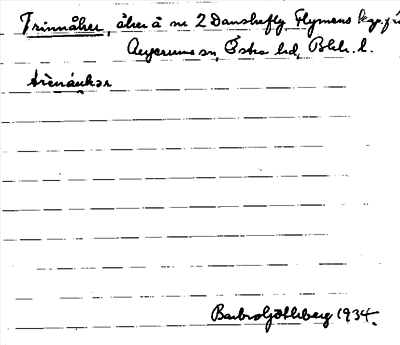 Trinnåker, åker å nr 2 Danskefly, Flymens kgp. fr.
Augerums sn, Östra hd, Blek. l.
trènåukər
Barbro Göthberg 1934.